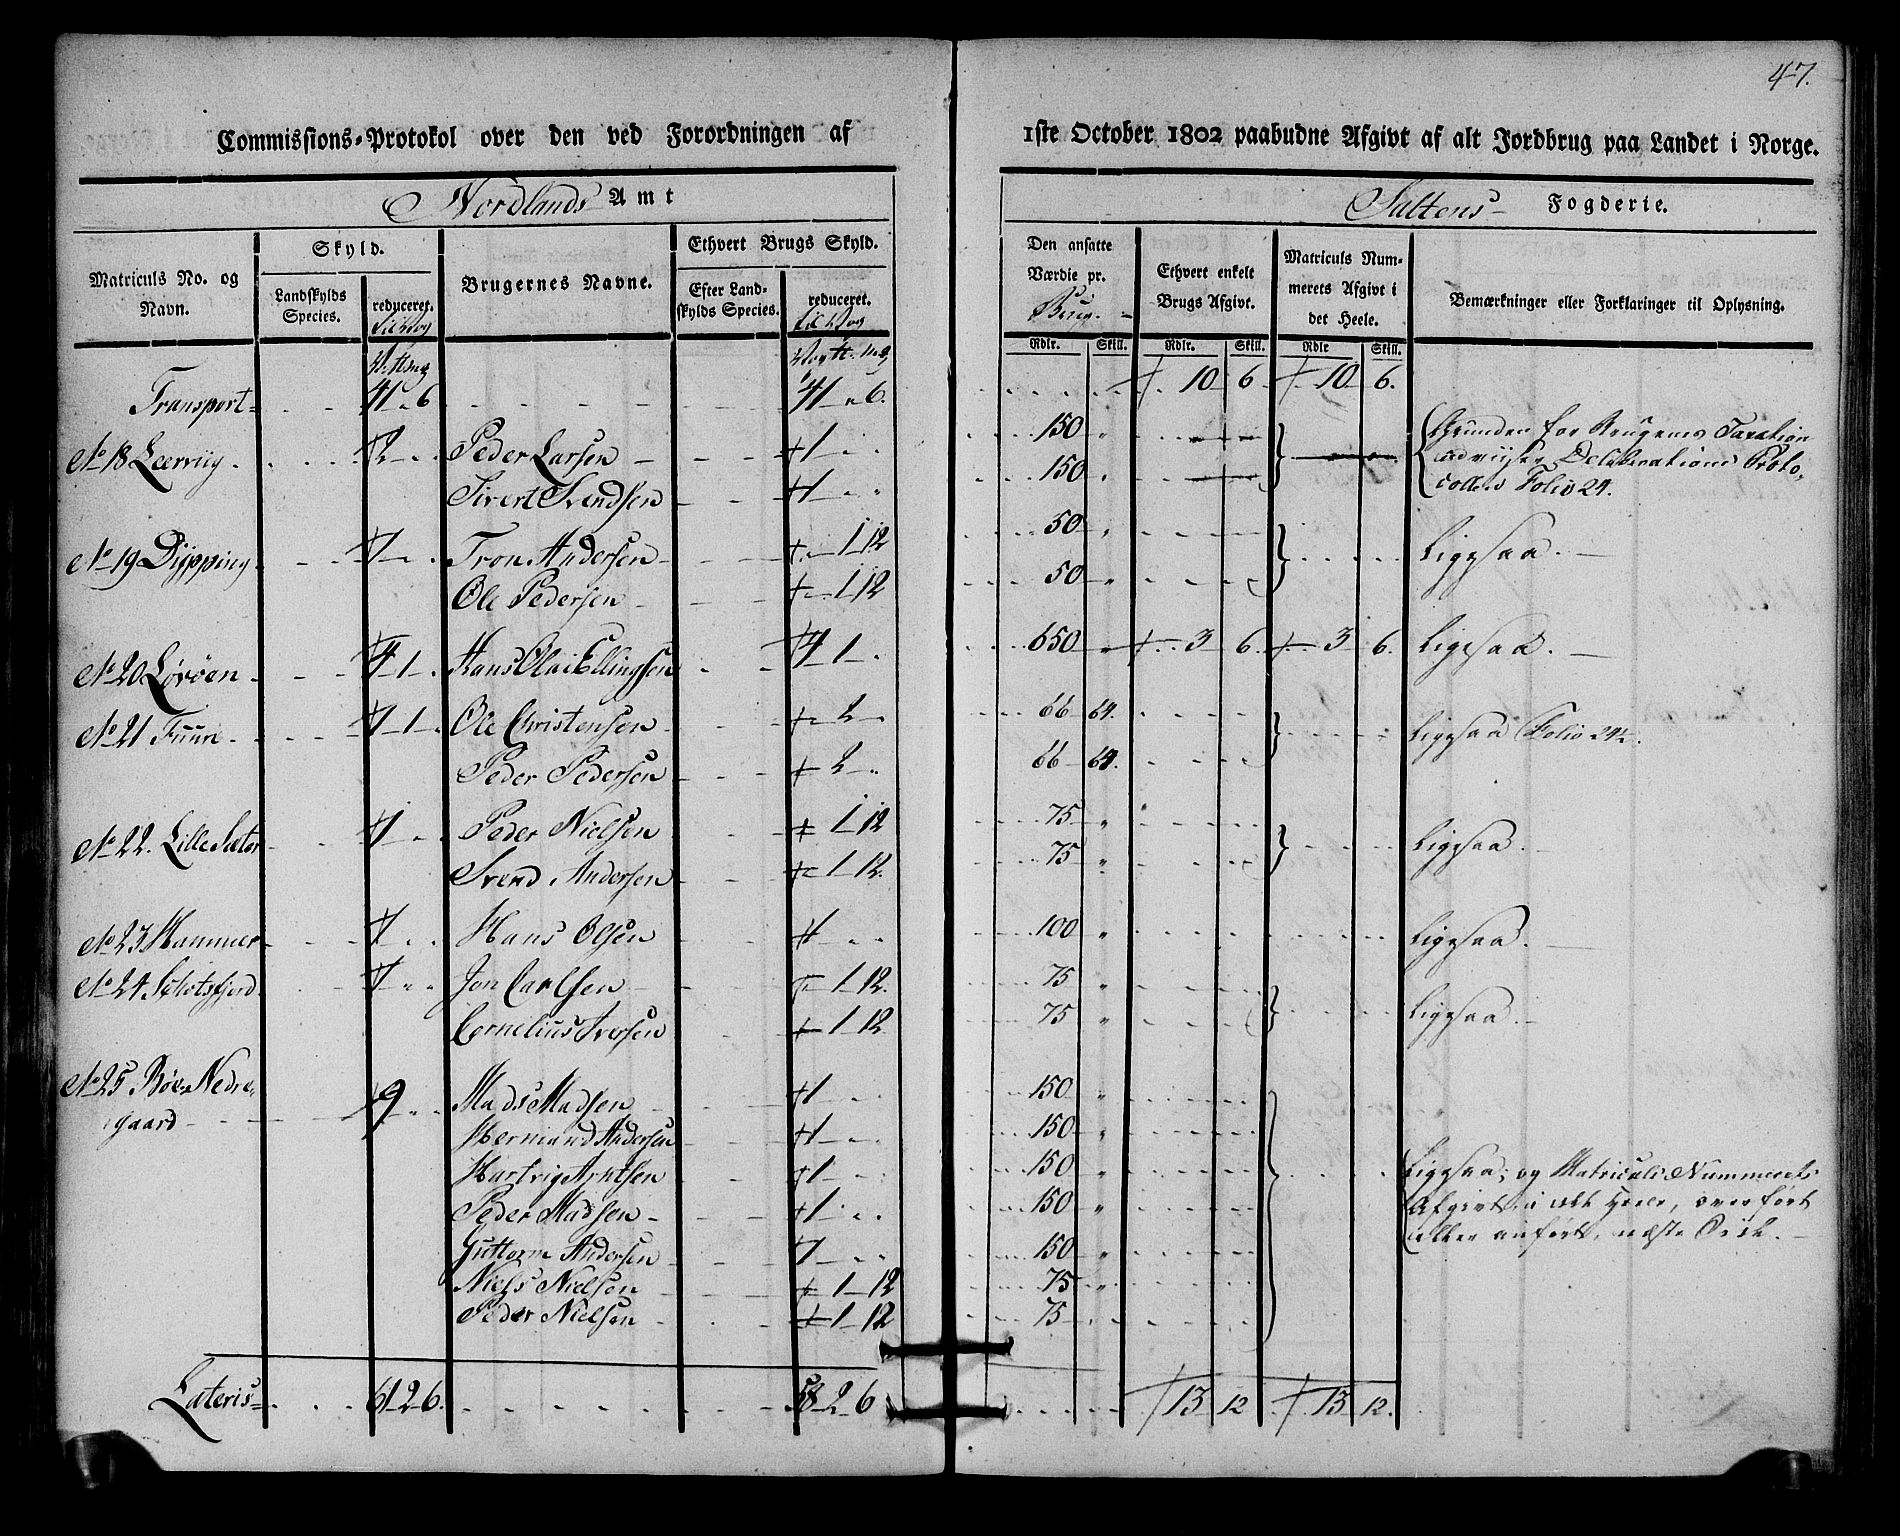 47.
Commissions-Protokol over den ved Forordningen af 1ste October 1802 paabudne Afgivt af alt Jordbrug paa Landet i Norge.
Nordlands Amt
Saltens Fogderie.
Matriculs No. og Navn.
Skyld.
Landskylds Species.
reduceret.
Brugernes Navne.
Ethvert Brugs Skyld.
Efter Landskylds Species.
reduceret.
Den ansatte Værdie pr. Brug.
Ethvert enkelt Brugs Afgivt.
Matriculs Nummerets Afgivt i det Heele.
Bemærkninger eller Forklaringer til Oplysning.
Rdlr. Skill. Rdlr. Skill. Rdlr Skill.
Transport 41 " 6 41 " 6. 10 6 10 6.
No 18 Leerviig 2 Peder Larsen 1 150 " Grunden for Brugenes Taxation
Sivert Svendsen 1 150 " udviiser Deliberations Proto-
collens Folio 24.
No 19 Dypping 1 Tron Andersen 1 12 50 " Ligesaa.
Ole Pedersen 1 12 50 "
No 20 Løvøen 4 1 Hans Olai Ellingsen 4 1 650 " 3 6 3 6. Ligesaa.
No 21 Fuure 1 1 Ole Christensen 2 66 64. Ligesaa Folio 24½.
Peder Pedersen 2 66 64.
No 22. Lille Sæter 1 Peder Nielsen 1 12 75 " Ligesaa.
Svend Andersen 1 12. 75 "
No 23 Hammer 1 Hans Olsen 1 100 " Ligesaa.
No 24 1 Jon Carlsen 1 12. 75 " Ligesaa.
Cornelius Iversen 1 12 75 "
No 25 Bøe Nedre-
gaard 9 Mads Madsen 1 150 "
Hermand Andersen 1 150 "
Hartvig Arntsen 1 150 " Ligesaa; og Matriculs Nummerets
Peder Madsen 1 150 " Afgivt i det Heele, overført
Guttorm Andersen 1 150 " eller anført, næste Side.
Niels Nielsen 1 12 75 "
Peder Nielsen 1 12 75
Lateris 61 2 6. 58 2 6 13 12 13 12.